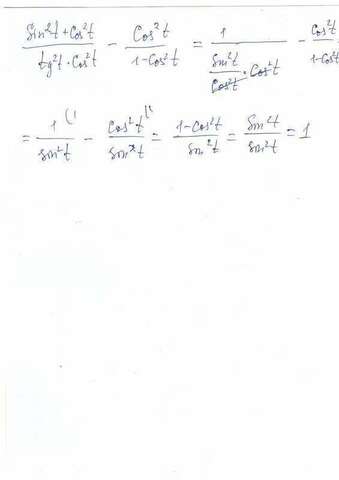 (Sin²t + Cos²t)/(tg²t · Cos²t) − Cos²t/(1 − Cos²t) = 1/(Sin²t/Cos²t · Cos²t) − Cos²t/(1 − Cos²t
= 1/sin²t − Cos²t/sin²t = (1 − Cos²t)/sin²t = Sin²t/sin²t = 1